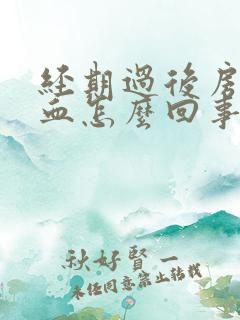 經期過後房
血怎麼回事
秋好賢一
未經同意禁止轉載